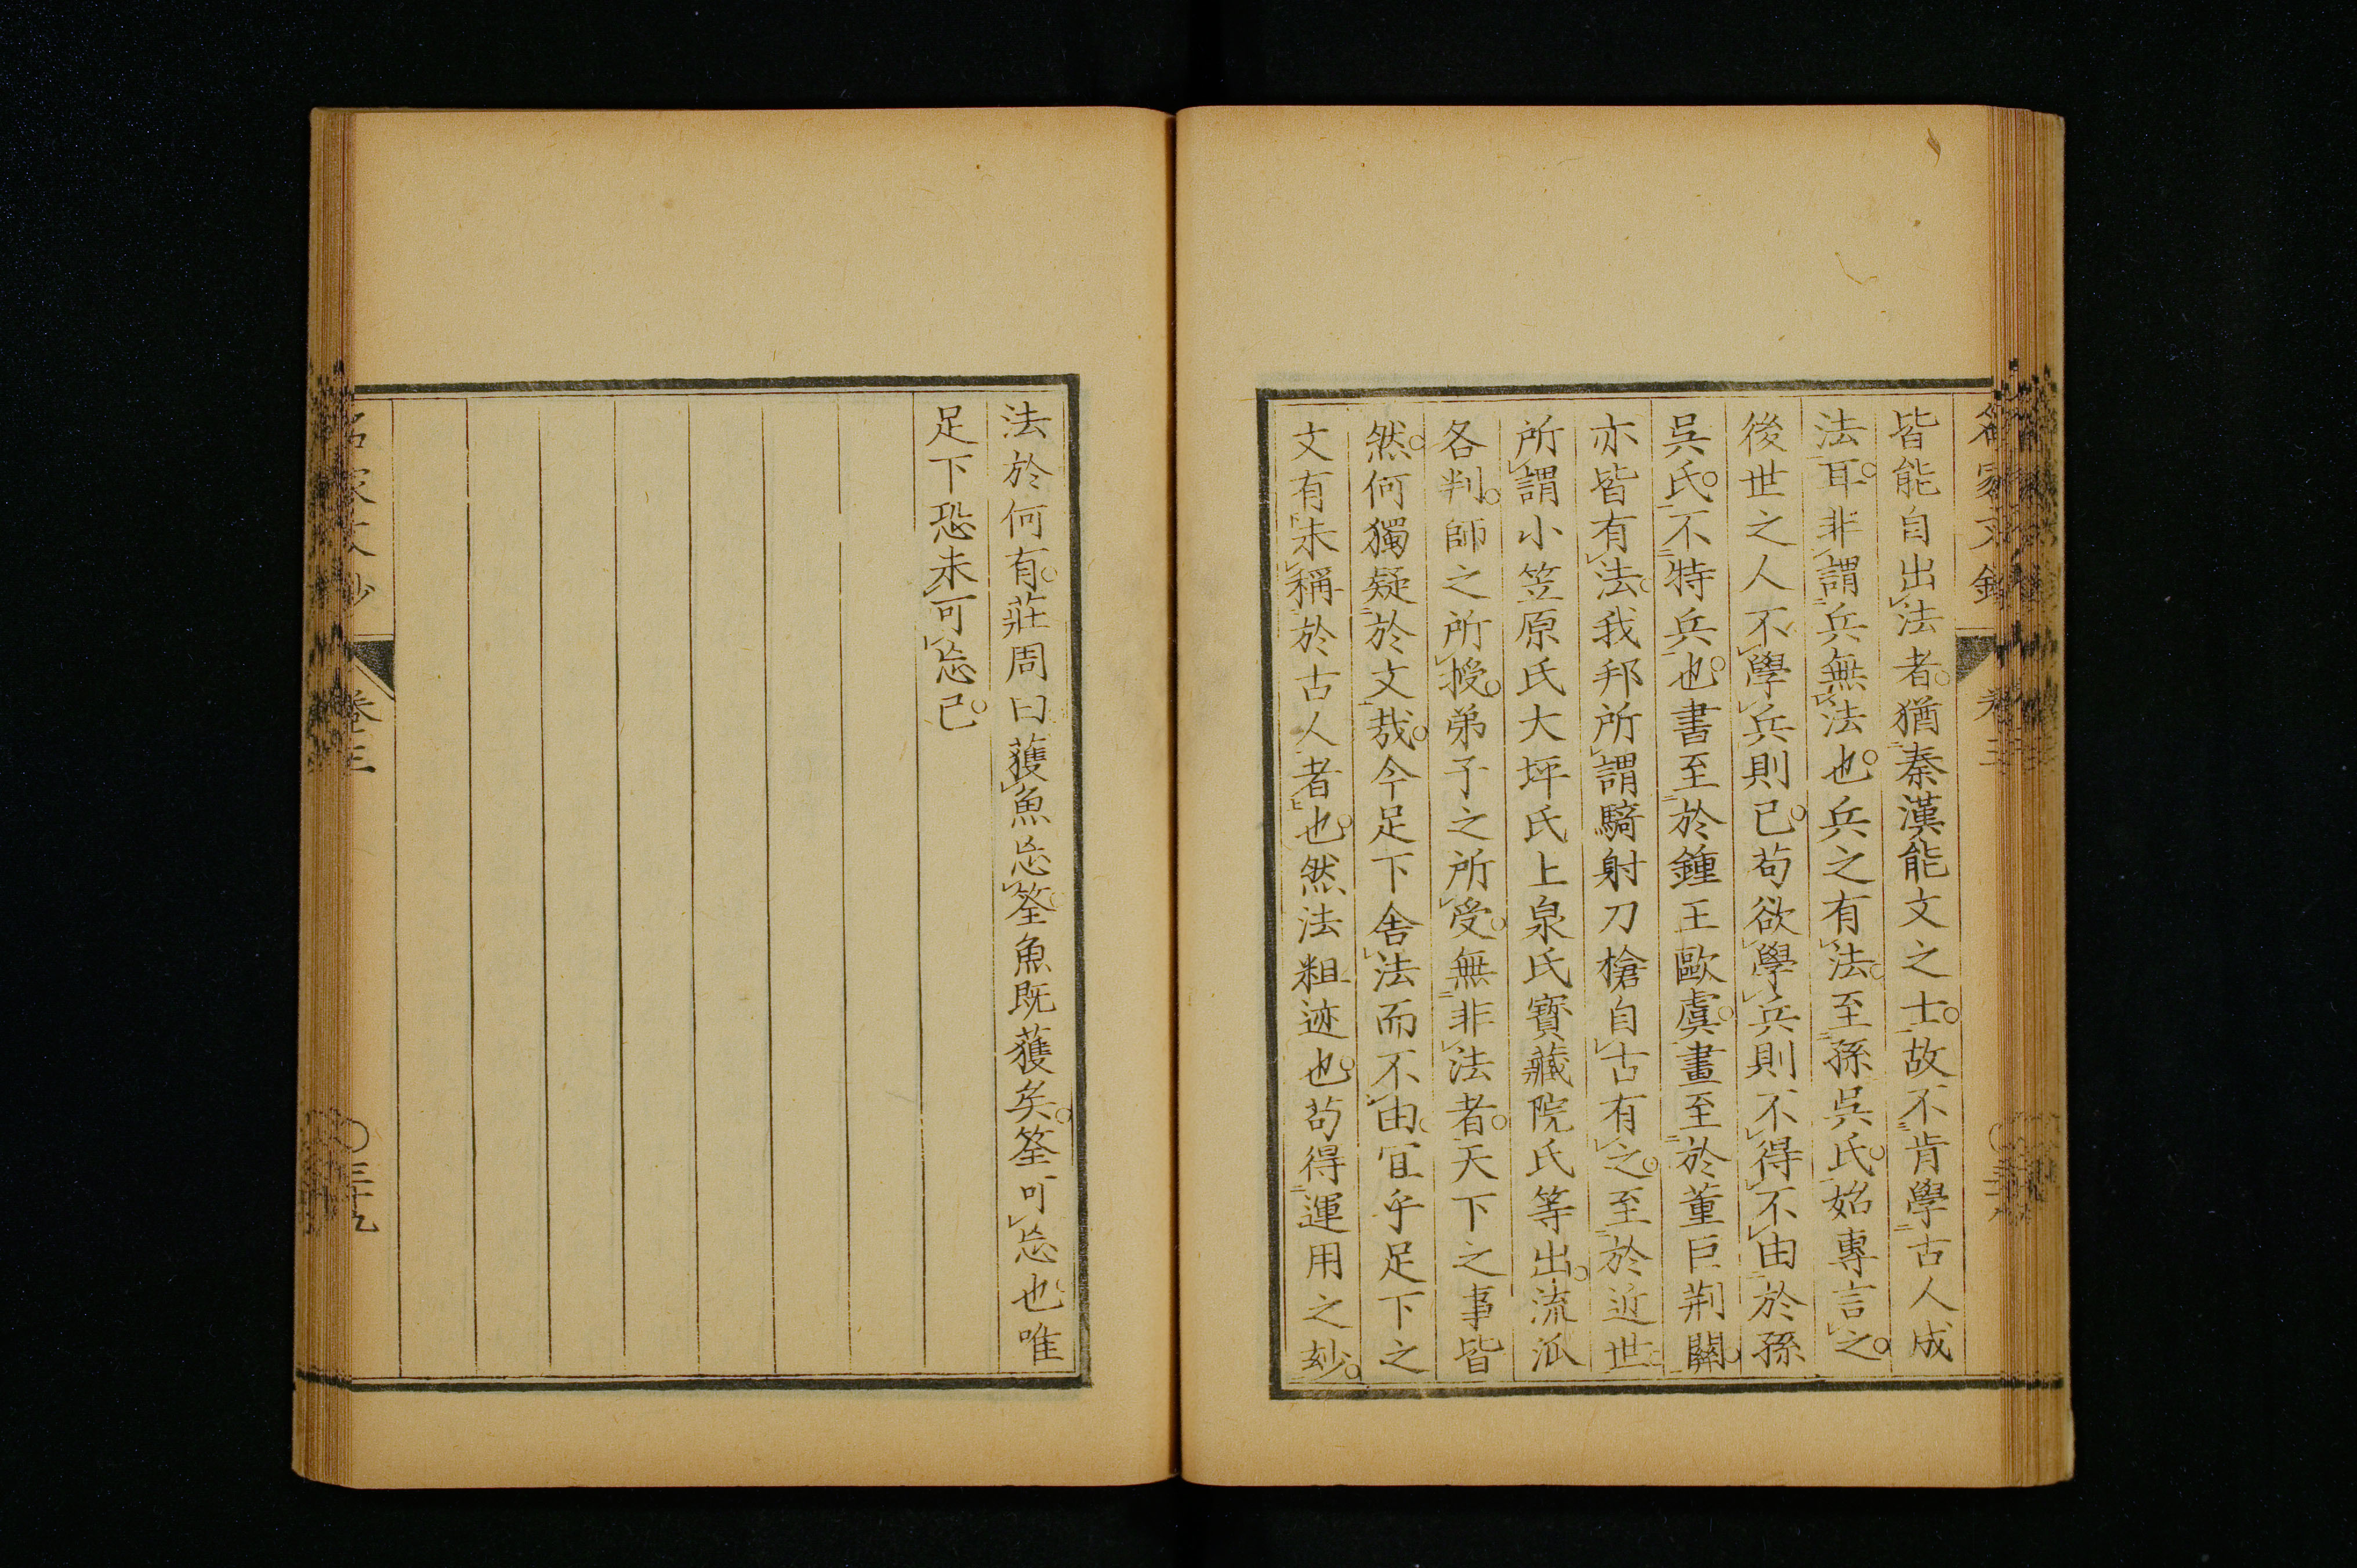 皆能自出法者。猶秦漢能文之士。故不肯學古人成
法耳。非謂兵無法也。兵之有法。至孫吳氏。始專言之。
後世之人不學兵則已。苟欲學兵則不得不由於孫
吳氏。不特兵也。書至於鍾王歐虞。畫至於董巨荆關。
亦皆有法。我邦所謂騎射刀槍自古有之。至於近世。
所謂小笠原氏大坪氏上泉氏寶藏院氏等出。流派
各判。師之所授。弟子之所受。無非法者。天下之事皆
然。何獨疑於文哉。今足下舍法而不由。宜乎足下之
文有未稱於古人者也。然法粗迹也。苟得運用之玅。
法於何有。莊周曰獲魚忘筌。魚既獲矣。筌可忘也。唯
足下恐未可忘已。
名家文鈔
卷三
〇三十九